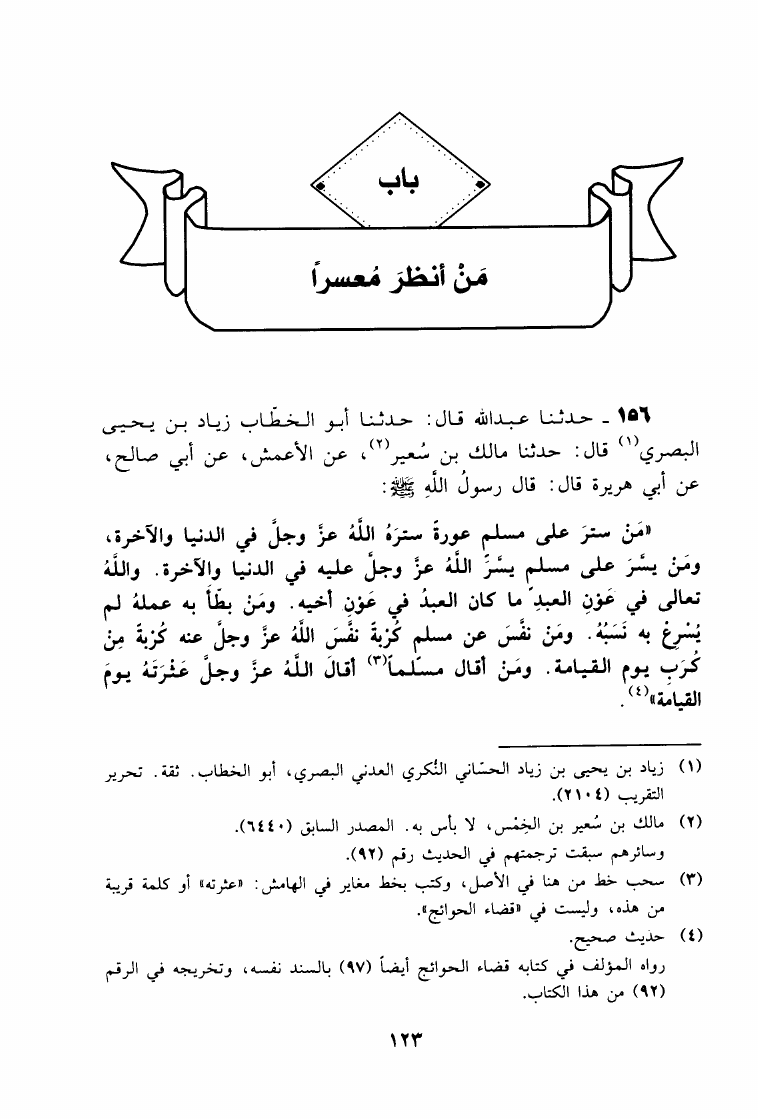 باب
مَنْ أنظرَ مُعسراً
١٥٦ ـ حدثنا عبدالله قال: حدثنا أبو الخطّاب زياد بن يحيى
البصري(١) قال: حدثنا مالك بن سُعير(٢)، عن الأعمش، عن أبي صالح،
عن أبي هريرة قال: قال رسولُ اللَّهِ ﷺ:
«مَنْ سترَ على مسلم عورةً سترَهُ اللَّهُ عزَّ وجلَّ في الدنيا والآخرة،
ومَنْ يسَّرَ على مسلمٍ يسَّرَ اللَّهُ عزَّ وجلَّ عليه في الدنيا والآخرة. واللَّهُ
تعالى في عَوْنِ العبدِ ما كان العبدُ في عَوْنِ أخيه. ومَنْ بطَّأَ به عملهُ لم
يُسْرِعْ به نَسَبُهُ. ومَنْ نفَّسَ عن مسلمٍ كُرْبةً نفَّسَ اللَّهُ عزَّ وجلَّ عنه كُرْبةً مِنْ
كُرَبِ يومِ القيامة. ومَنْ أقال مسلماً(٣) أقالَ اللَّهُ عزَّ وجلَّ عَثْرَتَهُ يومَ
القيامة»(٤).
(١) زياد بن يحيى بن زياد الحسّاني النُّكري العدني البصري، أبو الخطاب. ثقة. تحرير
التقريب (٢١٠٤).
(٢) مالك بن سُعير بن الخِمْس، لا بأس به. المصدر السابق (٦٤٤٠).
وسائرهم سبقت ترجمتهم في الحديث رقم (٩٢).
(٣) سحب خط من هنا في الأصل، وكتب بخط مغاير في الهامش: «عثرته» أو كلمة قريبة
من هذه، وليست في «قضاء الحوائج».
(٤) حديث صحيح.
رواه المؤلف في كتابه قضاء الحوائج أيضاً (٩٧) بالسند نفسه، وتخريجه في الرقم
(٩٢) من هذا الكتاب.
١٢٣